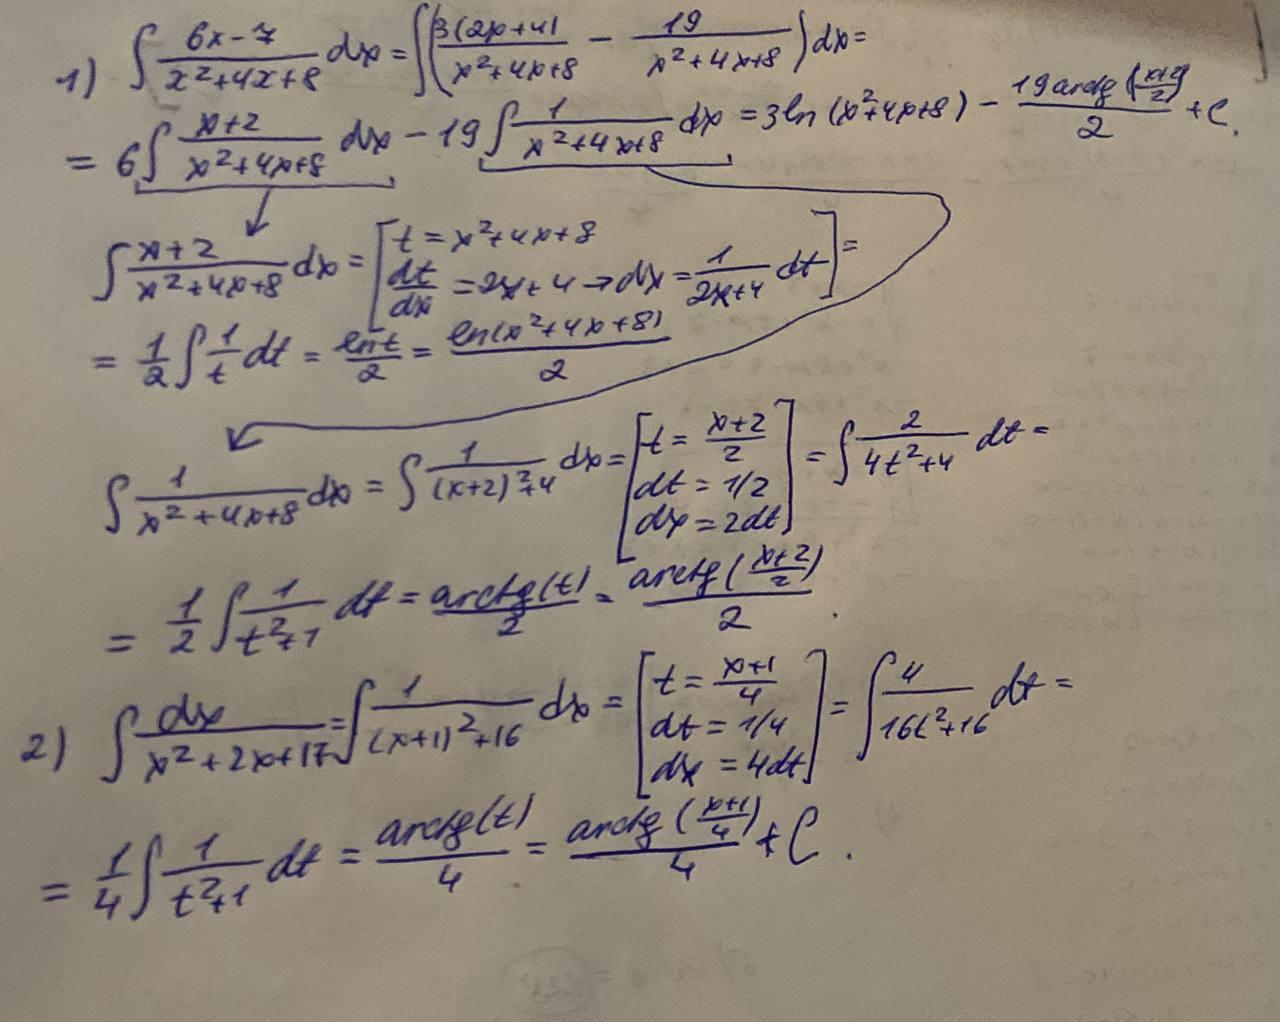 1) ∫ (6x-7)/(x²+4x+8) dx = ∫( 3(2x+4)/(x²+4x+8) - 19/(x²+4x+8) ) dx =
= 6∫ (x+2)/(x²+4x+8) dx - 19∫ 1/(x²+4x+8) dx = 3ln(x²+4x+8) - 19arctg((x+2)/2)/2 + C.
∫ (x+2)/(x²+4x+8) dx = [ t = x²+4x+8
dt/dx = 2x+4 → dx = 1/(2x+4) dt ] =
= 1/2 ∫ 1/t dt = ln t/2 = ln(x²+4x+8)/2
∫ 1/(x²+4x+8) dx = ∫ 1/((x+2)²+4) dx = [ t = (x+2)/2
dt = 1/2
dx = 2dt ] = ∫ 2/(4t²+4) dt =
= 1/2 ∫ 1/(t²+1) dt = arctg(t)/2 = arctg((x+2)/2)/2.
2) ∫ dx/(x²+2x+17) = ∫ 1/((x+1)²+16) dx = [ t = (x+1)/4
dt = 1/4
dx = 4dt ] = ∫ 4/(16t²+16) dt =
= 1/4 ∫ 1/(t²+1) dt = arctg(t)/4 = arctg((x+1)/4)/4 + C.